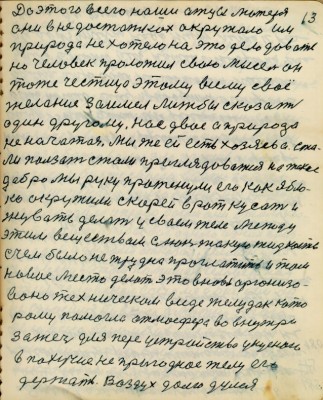 13
До этого всего наши отцы матеря
они в недостатках окружало им
природа не хотело на это дело давать
но человек проложил свою мисел он
тоже честицю этому всему своё
желание заимел лиж бы сказат
один другому. Нас двое а природа
не начатая, Мы же ей есть хозяева. Ста-
ли ползат стали приглядоватся на такое
добро Мы руки протянули его как ябло-
ко окружили скорей в рот кусат и
жуват делат у своем теле Между
этим веществам слюнявую жидкость
с чем было не трудна проглатит и там
новое место делат это вновь организо-
вано техническом введе желудак кото
рому помогла атмосфера во внутри
зажеч для переустройство укусного
в пахучие не пригодное телу его
держать. Воздух дало дулся